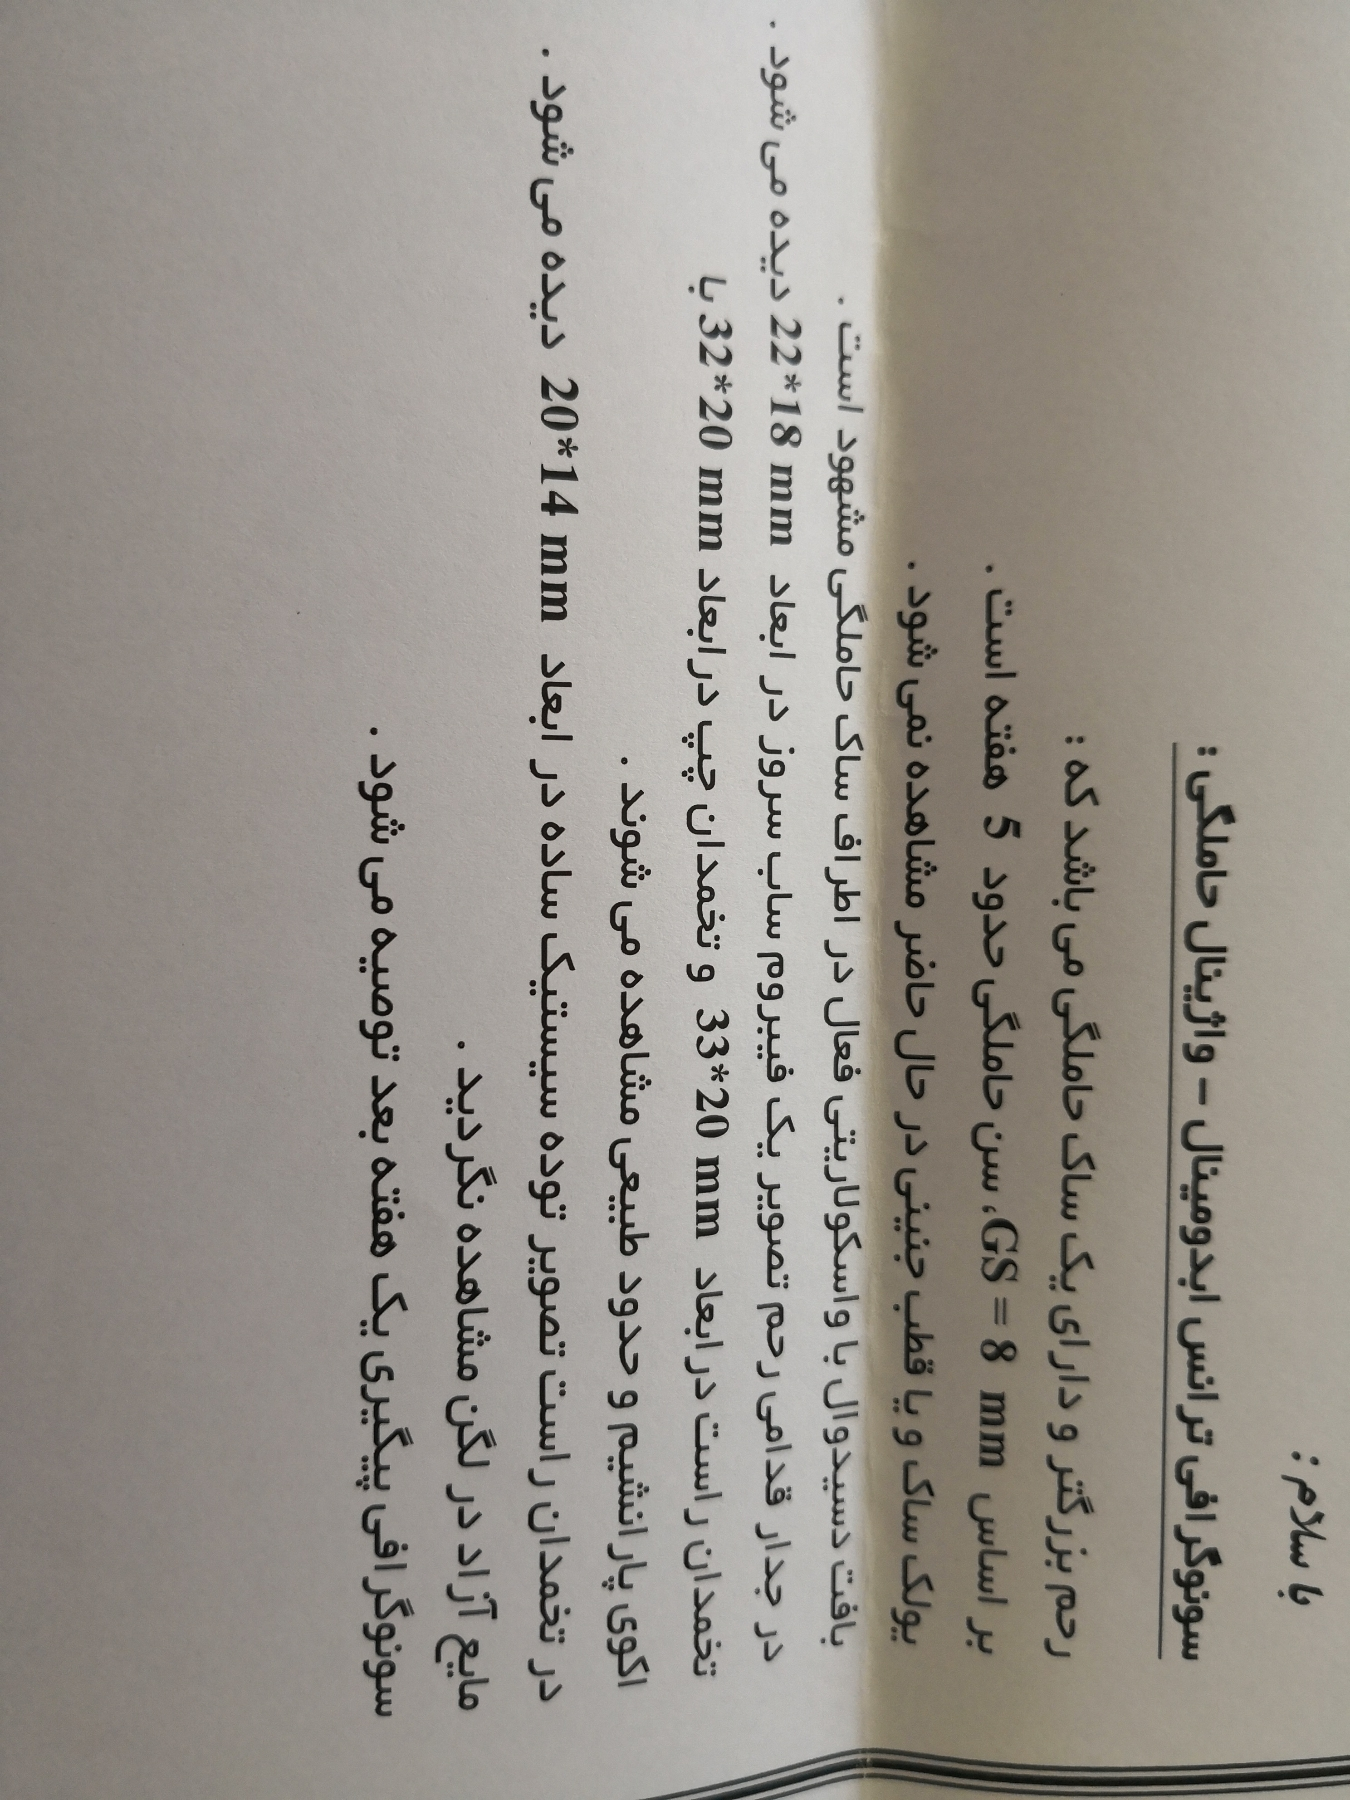 با سلام :
سونوگرافی ترانس ابدومینال – واژینال حاملگی :
رحم بزرگتر و دارای یک ساک حاملگی می باشد که :
بر اساس GS = 8 mm ، سن حاملگی حدود 5 هفته است .
یولک ساک و یا قطب جنینی در حال حاضر مشاهده نمی شود .
بافت دسیدوال با واسکولاریتی فعال در اطراف ساک حاملگی مشهود است .
در جدار قدامی رحم تصویر یک فیبروم ساب سروز در ابعاد 22*18 mm دیده می شود .
تخمدان راست درابعاد 33*20 mm و تخمدان چپ درابعاد 32*20 mm با
اکوی پارانشیم و حدود طبیعی مشاهده می شوند .
در تخمدان راست تصویر توده سیستیک ساده در ابعاد 20*14 mm دیده می شود .
مایع آزاد در لگن مشاهده نگردید .
سونوگرافی پیگیری یک هفته بعد توصیه می شود .